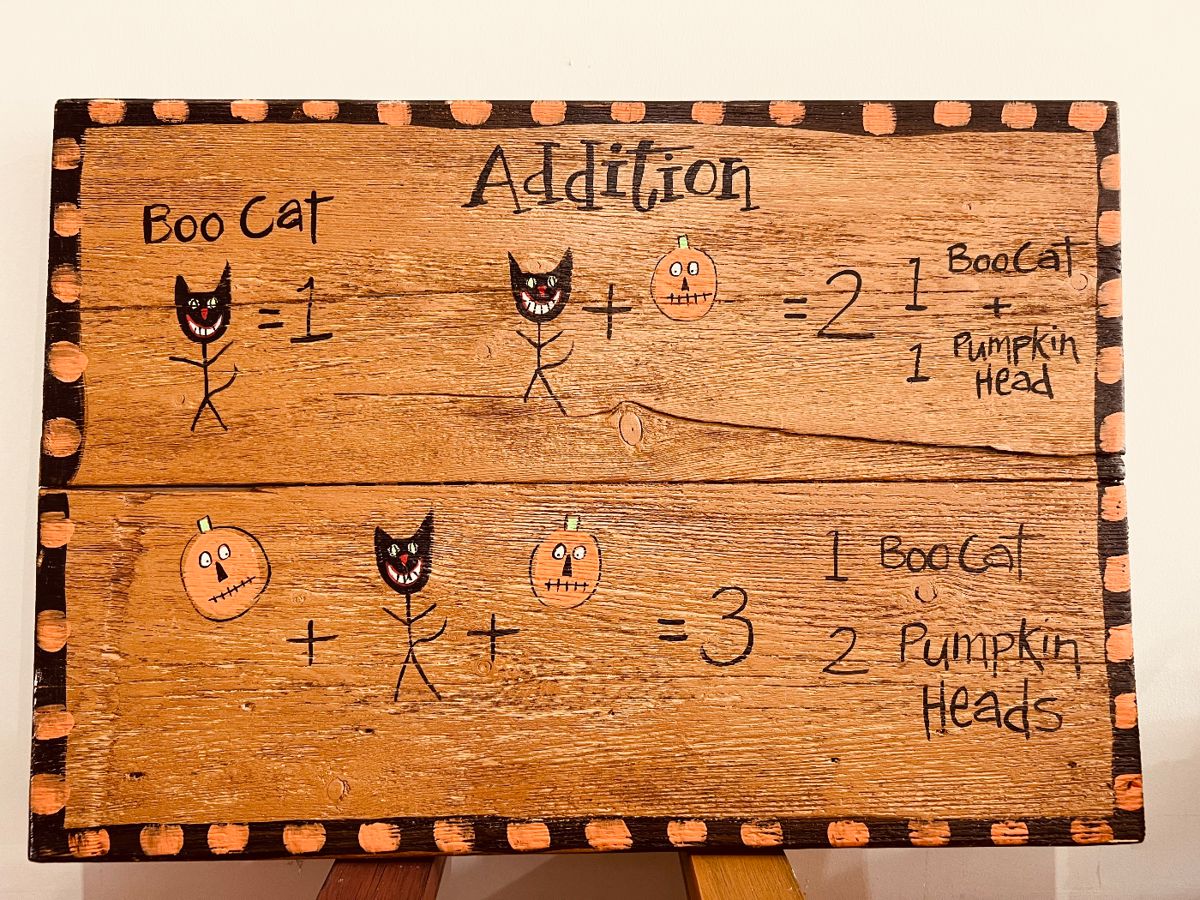 Addition
Boo Cat
= 1
+ = 2
1 Boo Cat
+
1 Pumpkin
Head
+ + = 3
1 Boo Cat
2 Pumpkin
Heads